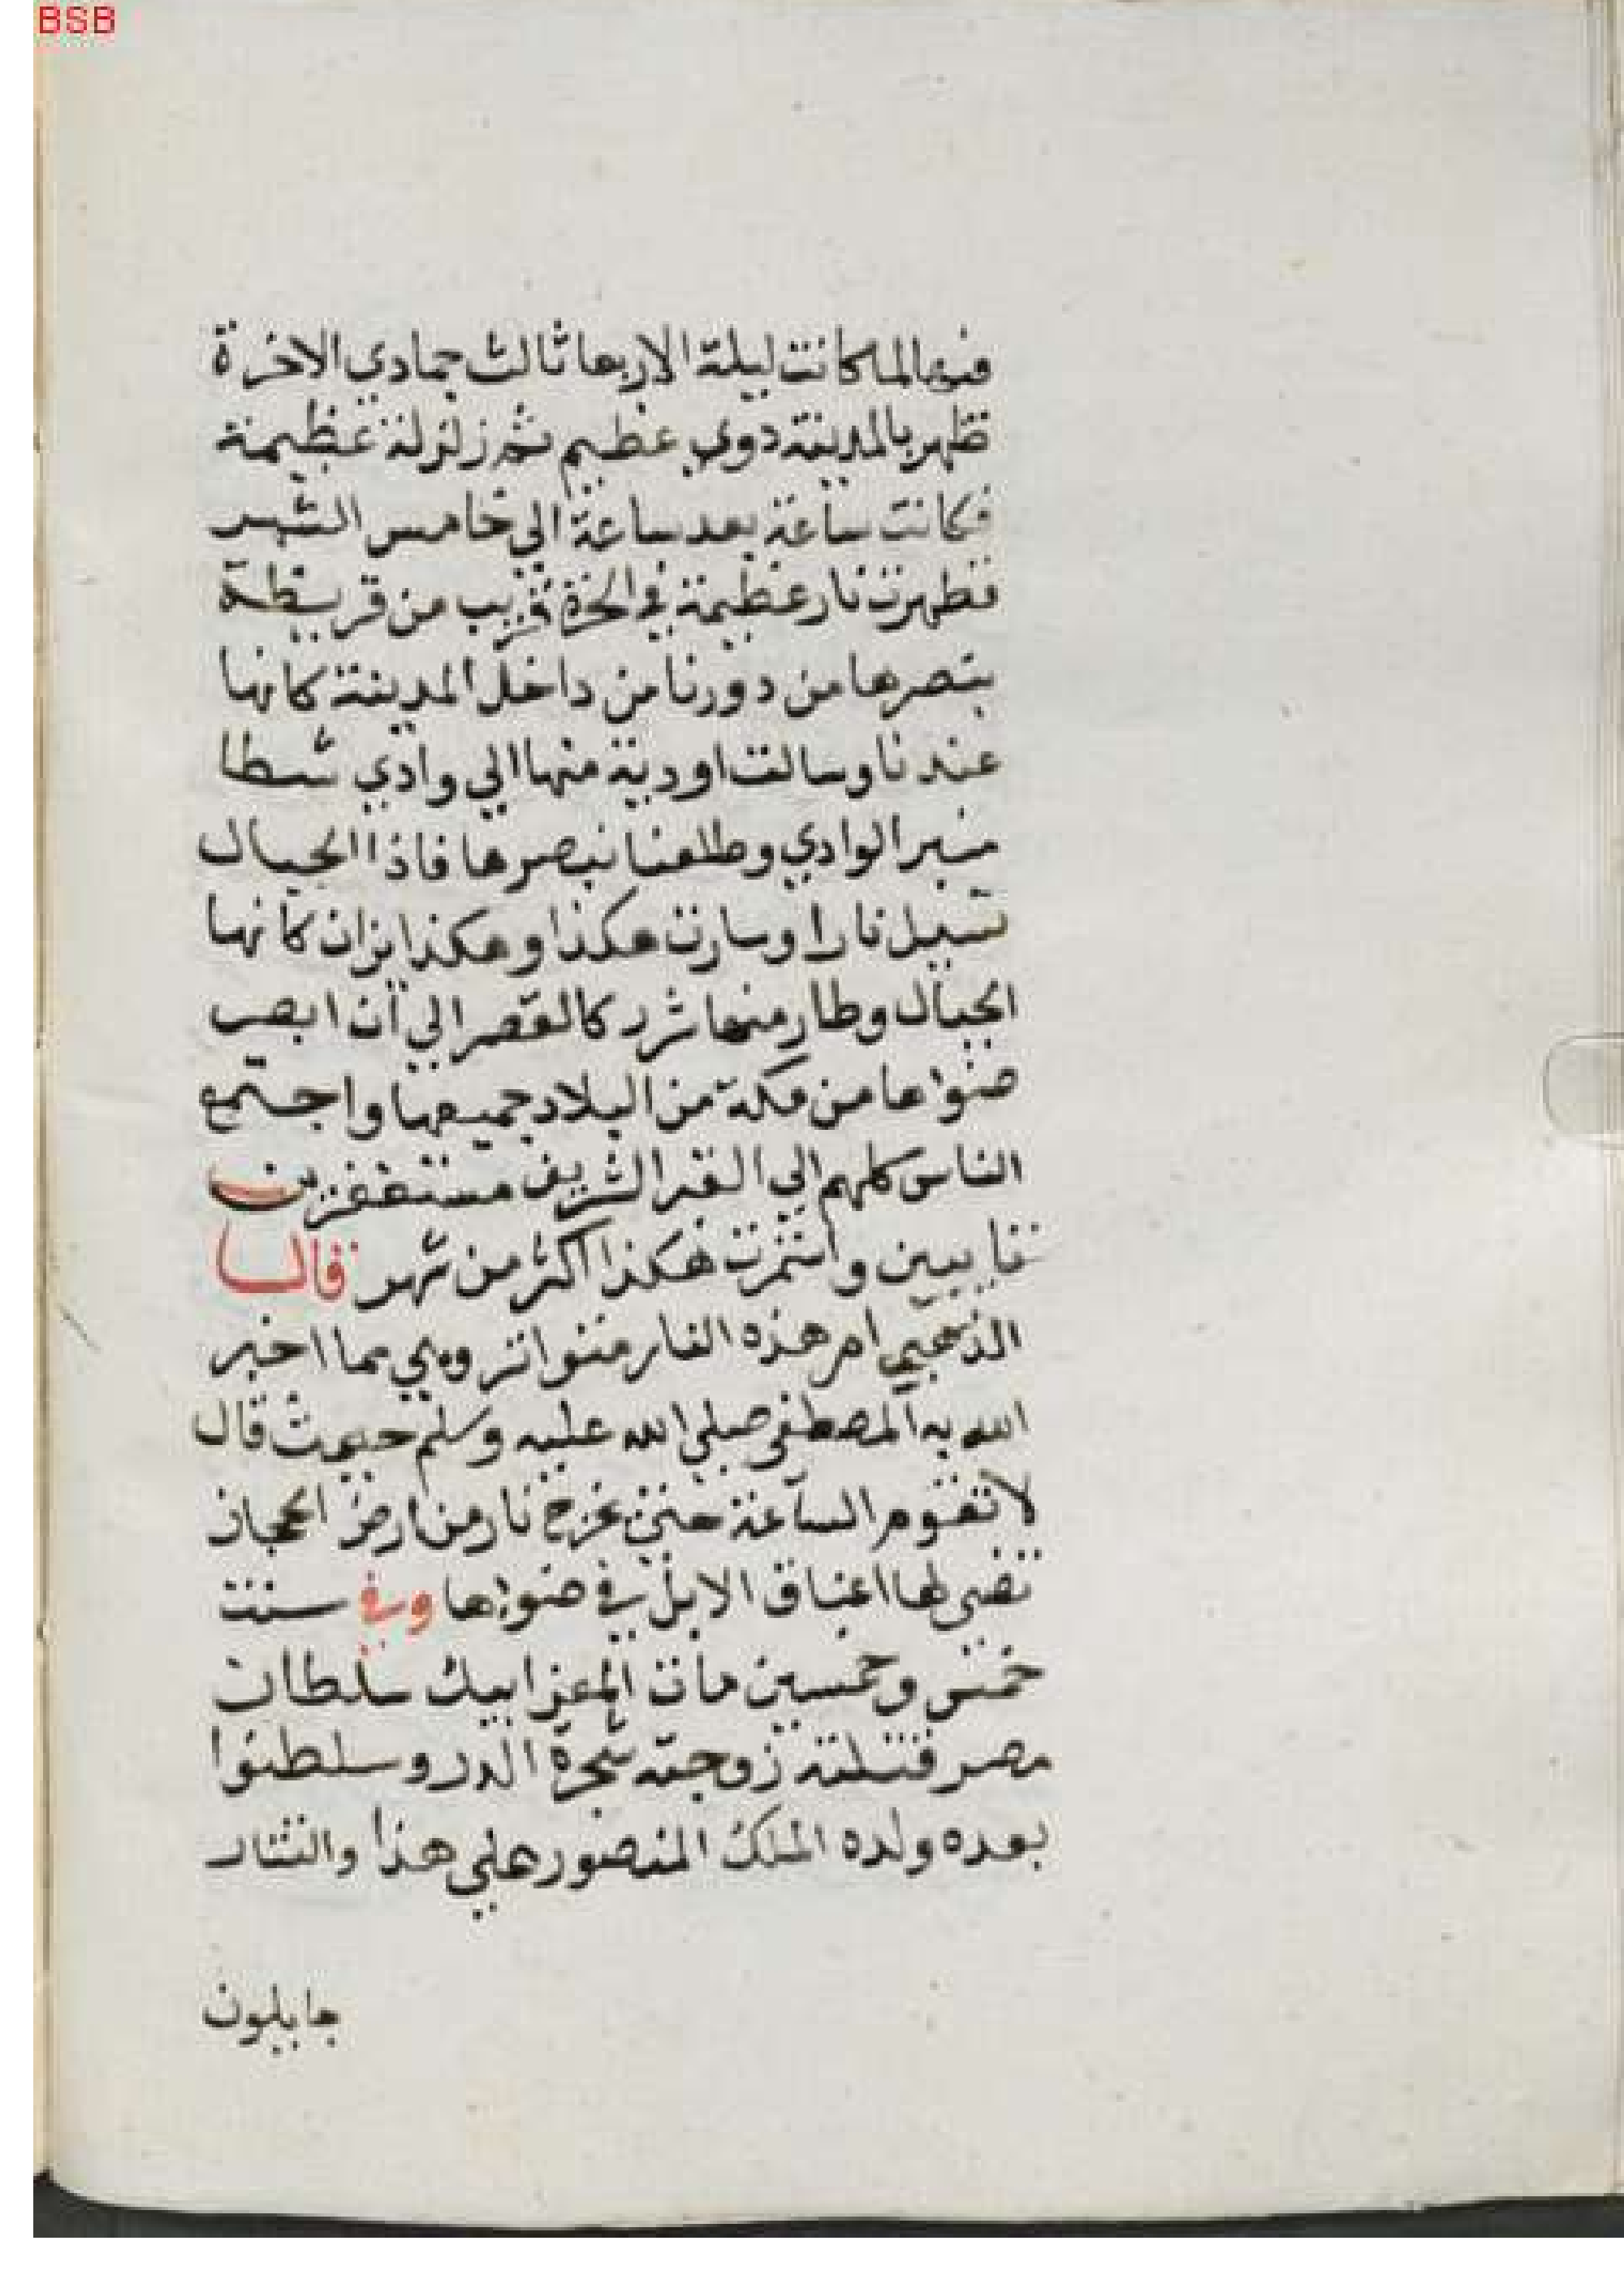 BSB
فيها لما كانت ليلة الاربعا ثالث جمادي الاخرة
ظهر بالمدينة دوي عظيم ثم زلزلة عظيمة
فكانت ساعة بعد ساعة الي خامس الشهر
فظهرت نار عظيمة في الحرة قريب من قريظة
نبصرها من دورنا من داخل المدينة كانها
عندنا وسالت اودية منها الي وادي شطا
مسير الوادي وطلعنا نبصرها فاذا الجبال
تسيل نارا وسارت هكذا وهكذا نران كانها
الجبال وطار منها شرر كالقصر الي ان ابصر
ضواها من مكة من البلاد جميعها واجتمع
الناس كلهم الي القبر الشريف مستغفرين
تايبين واستمرت هكذا اكثر من شهر قال
الذهبي امر هذه النار متواتر وهي مما اخبر
الله به المصطفي صلي الله عليه وسلم حيث قال
لا تقوم الساعة حتي تخرج نار من ارض الحجاز
تضي لها اعناق الابل في ضواها وفي سنت
خمس وخمسين مات المعز ايبك سلطان
مصر قتلته زوجته شجرة الدر وسلطنوا
بعده ولده الملك المنصور علي هذا والتتار
جايلون